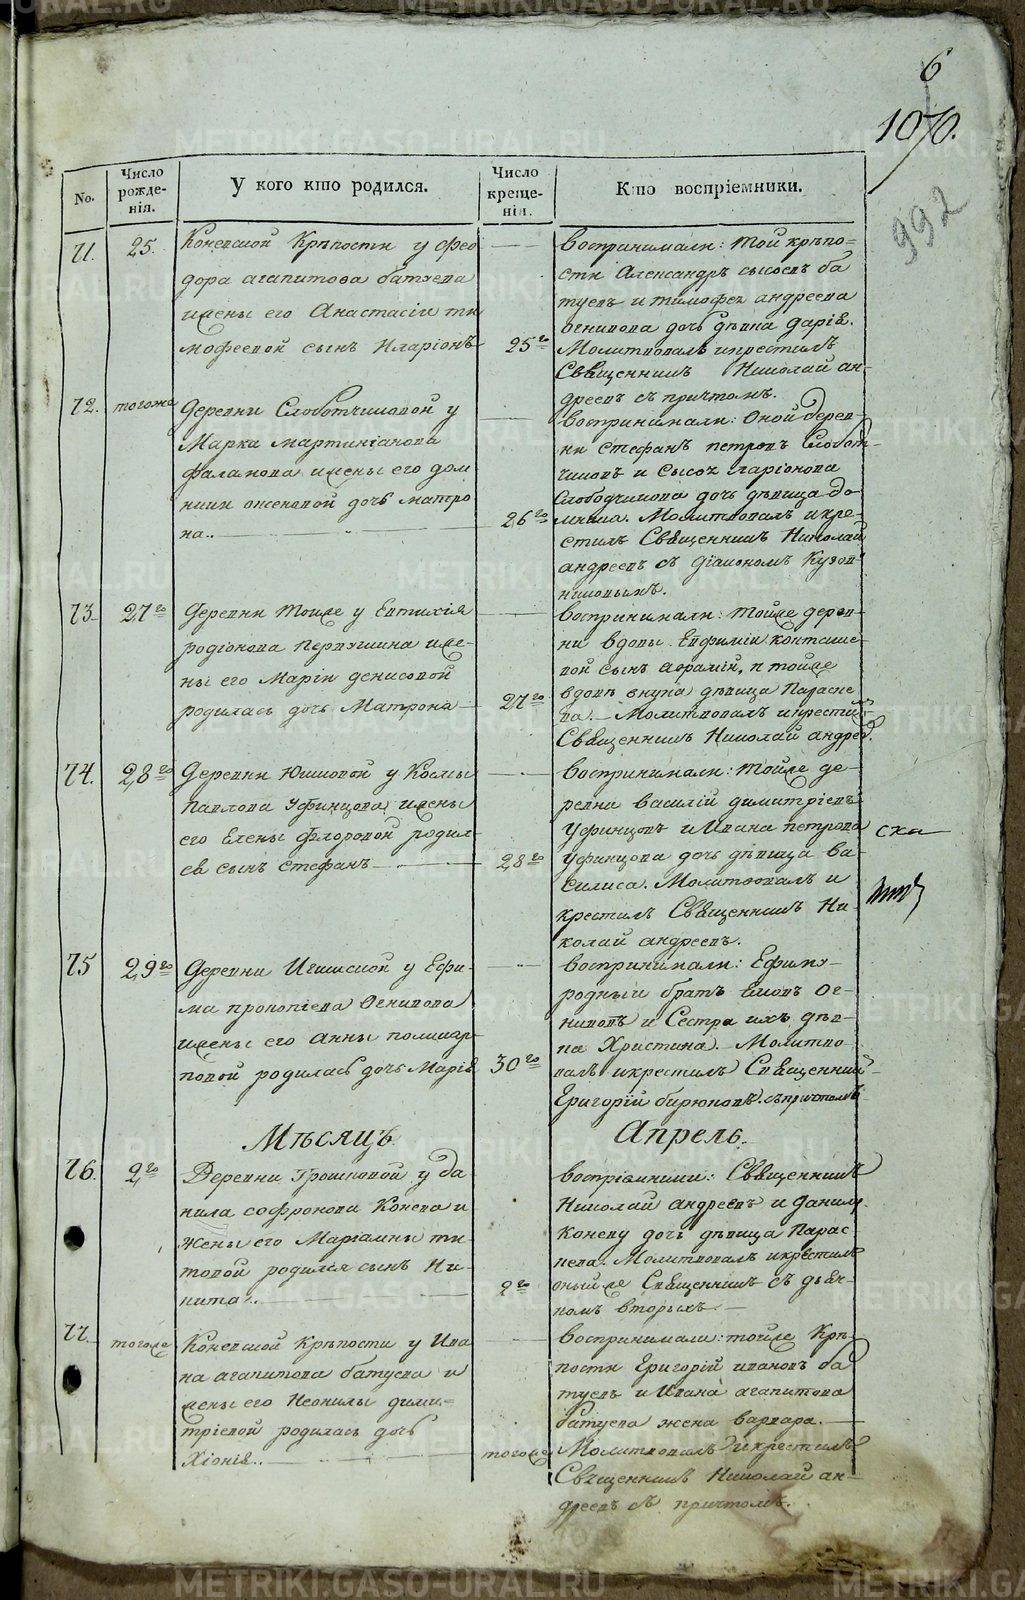 6
1070.
992
No.
Число рожденія.
У кого кто родился.
Число крещенія.
Кто воспріемники.
71.
25.
Коневской Крѣпости у Фео
дора агапитова батуева
ижены его Анастасіи ти
мофеевой сынъ Иларіонъ
25го
Воспринимали: той крѣпо=
сти Александръ сысоевъ ба
туевъ и тимофея андреева
огнивова дочь дѣвка дарія.
Молитвовалъ икрестилъ
Священникъ Николай ан-
дреевъ съ причтомъ.
72.
тогоже
деревни Слоботчиковой у
Марка мартиніанова
фалакова ижены его дом
ники дочь матро
на..
26го
воспринимали: Оной дерев-
ни стефанъ петровъ Слобот-
чиковъ и Сысоя ларіонова
Слободчикова дочь дѣвица до-
мника. Молитвовалъ икре-
стилъ Священникъ Николай
андреевъ съ діакономъ Кузов-
никовымъ.
73.
27го
деревни тойже у Евтихія
родіонова Первушина иже-
ны его Маріи денисовой
родилась дочь Матрона
27го
воспринимали: тойже дерев-
ни вдовы Евфиміи
вой сынъ аврамій, и тойже
вдовы внука дѣвица Параске
ва. Молитвовалъ икрестилъ
Священникъ Николай андреев.
74.
28го
деревни Юшковой у Космы
павлова Уфинцова ижены
его Елены флоровой родил
ся сынъ стефанъ
28го
воспринимали: тойже де-
ревни василій димитріевъ
Уфинцовъ и Ивана петрова
Уфинцова дочь дѣвица ва-
силиса. Молитвовалъ и
крестилъ Священникъ Ни-
колай андреевъ.
ска
75
29го
деревни Игишской у Ефи-
ма прокопіева Огнивова
ижены его анны поликар-
повой родилась дочь Марія
30го
воспринимали: Ефиму
родный братъ Іаковъ Ог-
нивовъ и Сестра ихъ дѣв-
ка Христина. Молитво-
валъ икрестилъ Священникъ
Григорій бирюковъ. съ причтомъ
Мѣсяцъ
Апрель.
76.
2го
Деревни Грошковой у да
нила софронова Конева и
жены его Маріамны ти
товой родился сынъ Ни-
кита..
2го
воспріемники: Священникъ
Николай андреевъ и данилы
Конева дочь дѣвица Парас-
кева. Молитвовалъ икрестилъ
онойже Священникъ съ дьяч-
комъ вторыхъ
77.
тогоже
Коневской Крѣпости у Ива
на агапитова батуева и
жены его Неонилы дими=
тріевой родилась дочь
Хіонія..
тогоже
Воспринимали: тойже Крѣ-
пости Григорій ивановъ ба
туевъ и Ивана агапитова
батуева жена варвара.
Молитвовалъ икрестилъ
Священникъ Николай ан-
дреевъ съ причтомъ.
METRIKI.GASO-URAL.RU